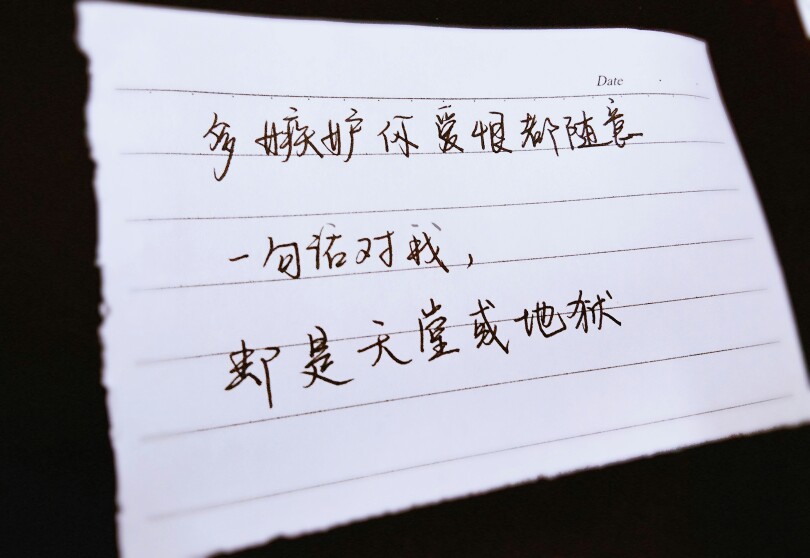 Date
多嫉妒你爱恨都随意
一句话对我，
都是天堂或地狱